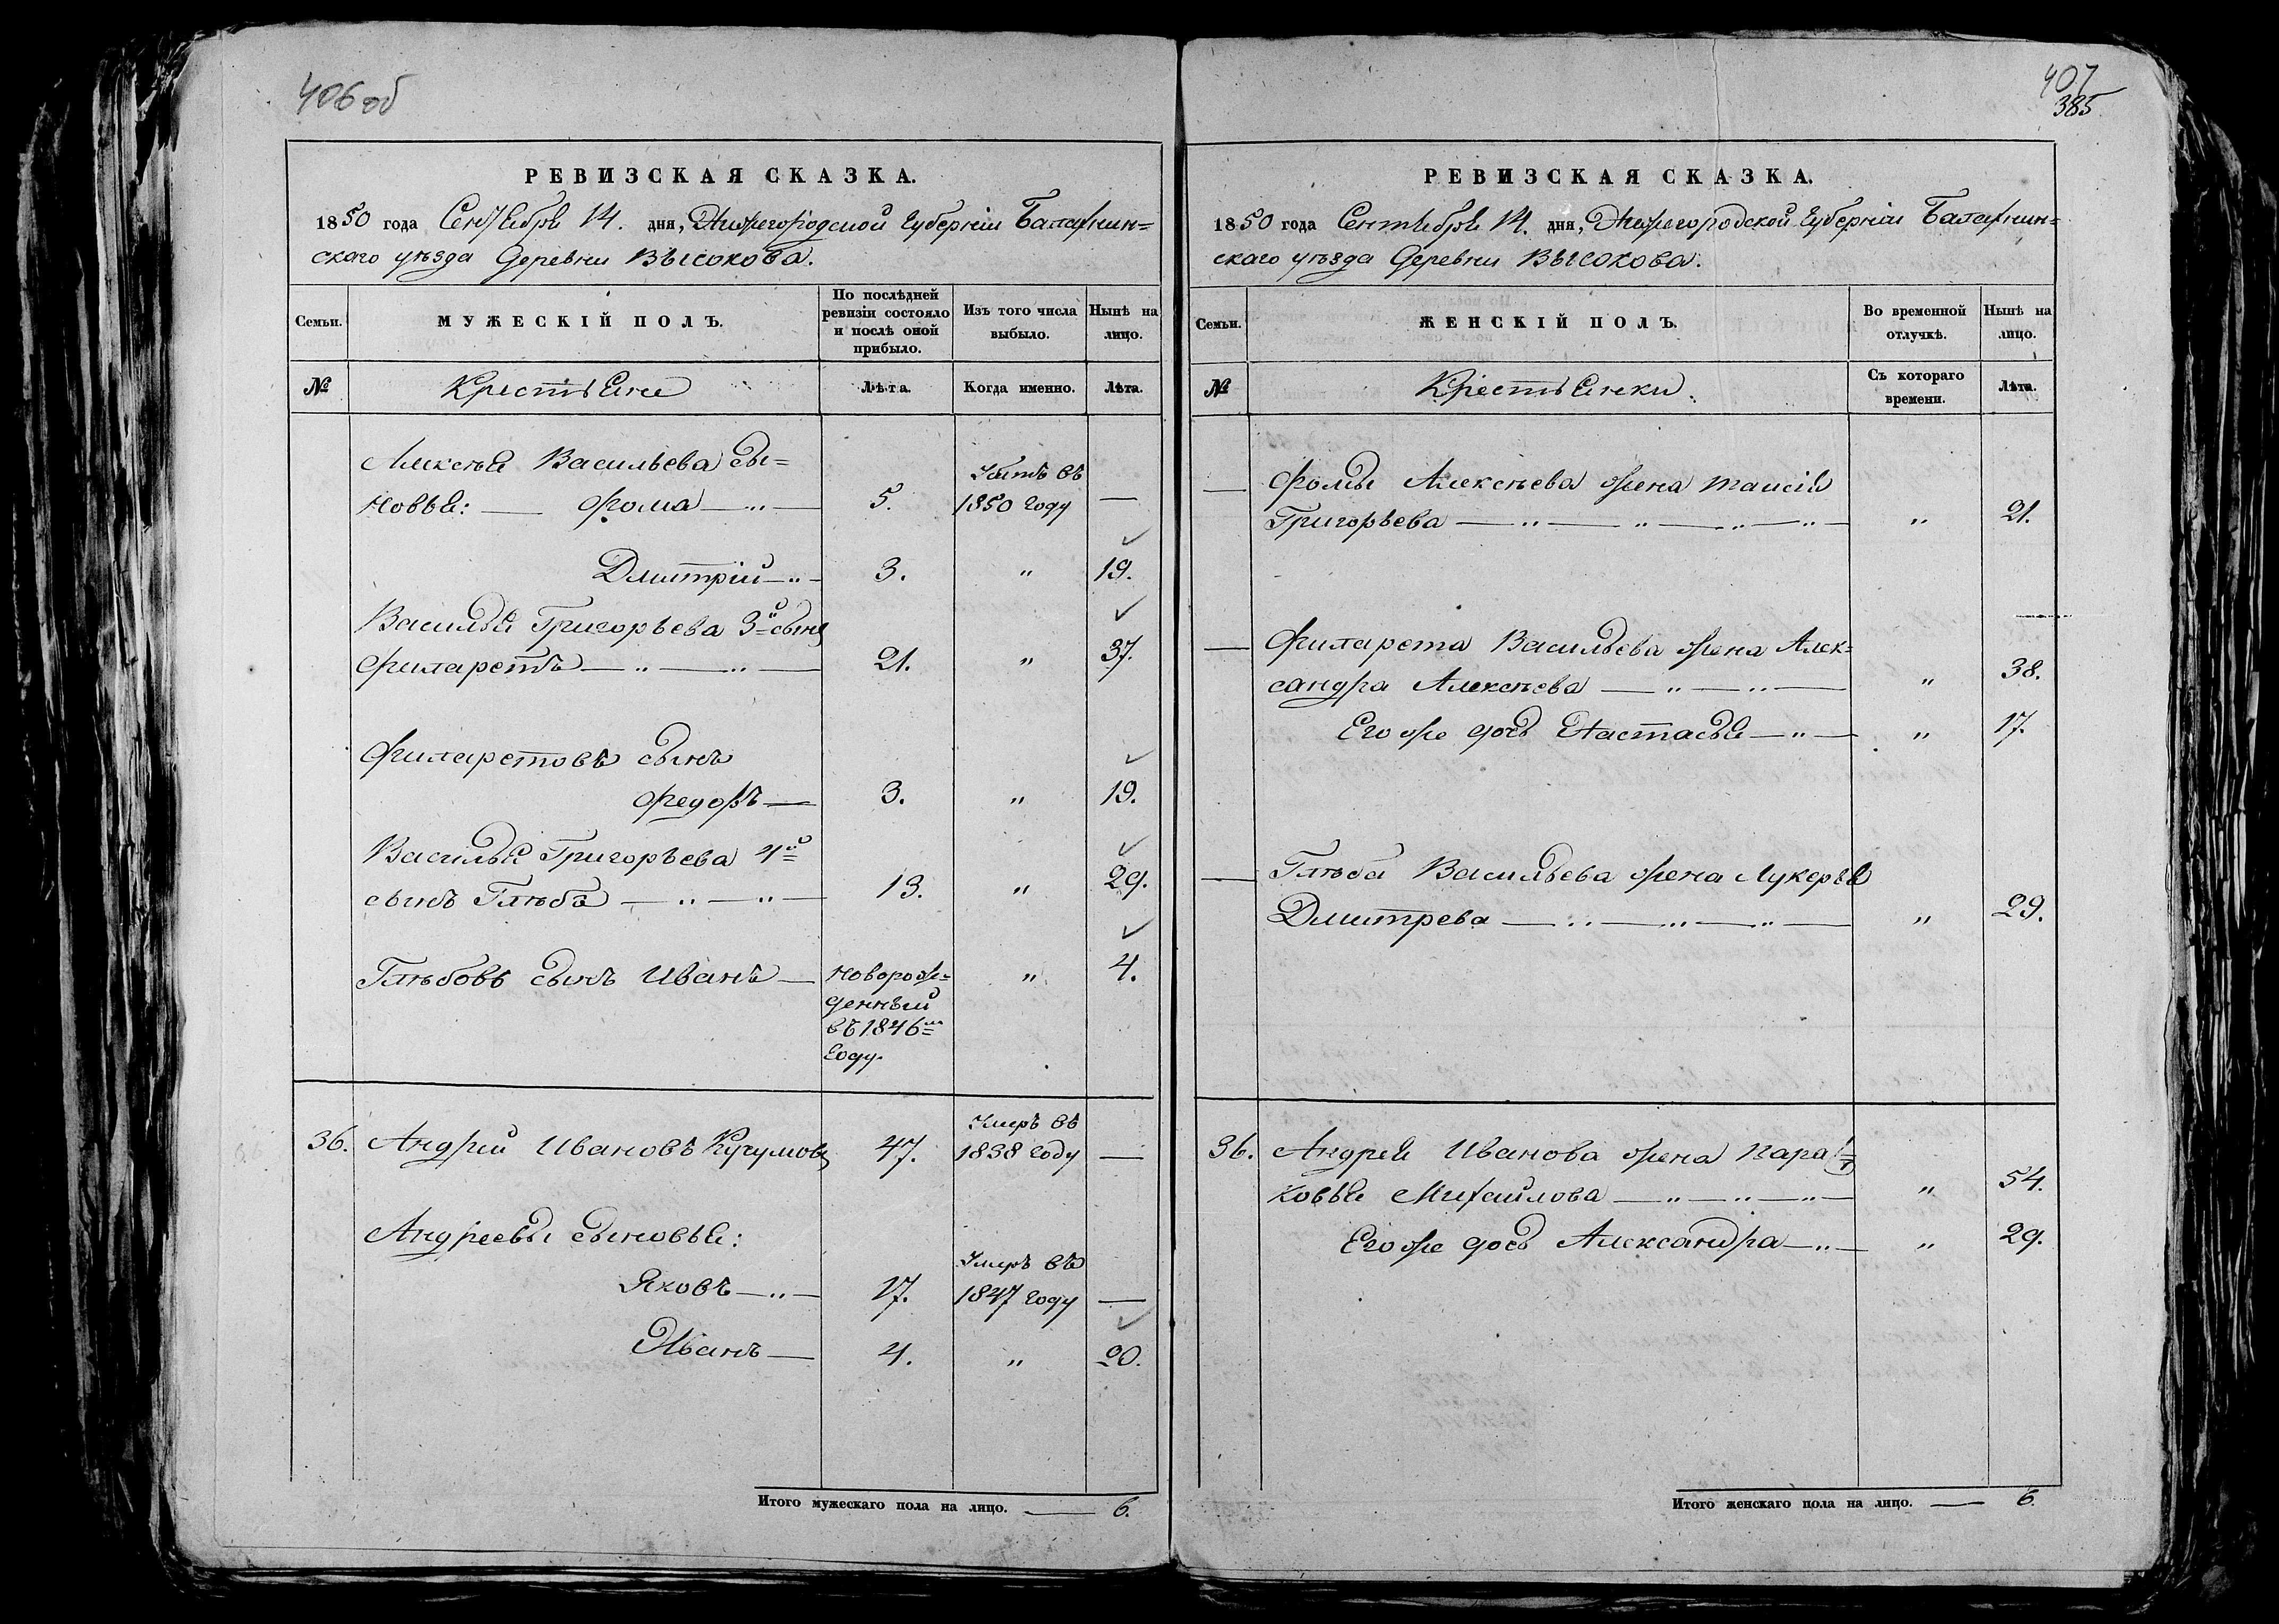 406 об
РЕВИЗСКАЯ СКАЗКА.
1850 года Сентября 14. дня, Нижегородской Губерніи Балахнин=
скаго уѣзда Деревни Высокова.
Семьи.
МУЖЕСКІЙ ПОЛЪ.
По послѣдней
ревизіи состояло
и послѣ оной
прибыло.
Изъ того числа
выбыло.
Нынѣ на
лицо.
№
Крестьяне
Лѣта.
Когда именно.
Лѣта.
Алексѣя Васильева сы=
новья: — Фома — „ — 5. 1850 году —
Дмитрій — „ — 3. „ 19.
Василья Григорьева 3й сынъ
Филаретъ — „ — „ — 21. „ 37.
Филаретовъ сынъ
Федоръ — 3. „ 19.
Василья Григорьева 4й
сынъ Глѣбъ — „ — „ — 13. „ 29.
Глѣбовъ сынъ Иванъ — новорож= „ 4.
денный
въ 1846м
году.
36. Андрей Ивановъ 47. Умеръ въ
1838 году —
Андреевы сыновья:
Яковъ — „ — 17. Умеръ въ
1847 году —
Иванъ — 4. „ 20.
Итого мужескаго пола на лицо. — 6.
407
385
РЕВИЗСКАЯ СКАЗКА.
1850 года Сентября 14. дня, Нижегородской Губерніи Балахнин=
скаго уѣзда Деревни Высокова.
Семьи.
ЖЕНСКІЙ ПОЛЪ.
Во временной
отлучкѣ.
Нынѣ на
лицо.
№
Крестьянки.
Съ котораго
времени.
Лѣта.
— Фомы Алексѣева жена Таисія
Григорьева — „ — „ — „ — „ — „ 21.
— Филарета Васильева жена Алек=
сандра Алексѣева — „ — „ — „ 38.
Его же дочь Настасья — „ — „ 17.
— Глѣба Васильева жена Лукерья
Дмитрева — „ — „ — „ — „ 29.
36. Андрея Иванова жена Пара
ковья Михайлова — „ — „ — „ — „ 54.
Его же дочь Александра — „ — „ 29.
Итого женскаго пола на лицо. — 6.